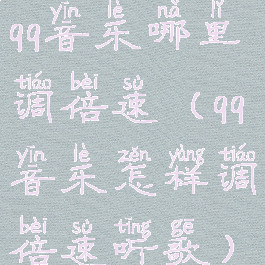 yīn lè nǎ lǐ
99音乐哪里
tiáo bèi sù
调倍速（99
yīn lè zěn yàng tiáo
音乐怎样调
bèi sù tīng gē
倍速听歌）